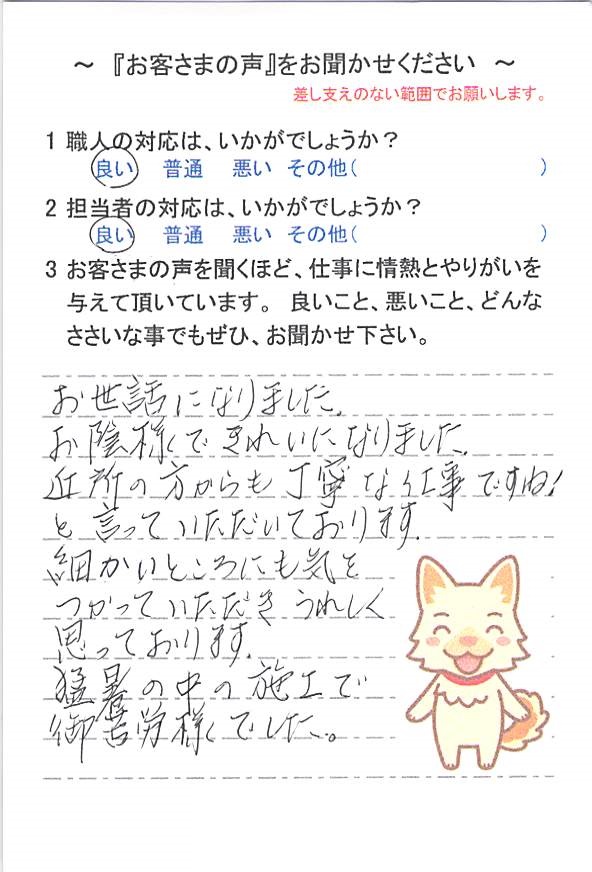 ～ 『お客さまの声』をお聞かせください ～
差し支えのない範囲でお願いします。
1 職人の対応は、いかがでしょうか？
良い 普通 悪い その他( )
2 担当者の対応は、いかがでしょうか？
良い 普通 悪い その他( )
3 お客さまの声を聞くほど、仕事に情熱とやりがいを
与えて頂いています。 良いこと、悪いこと、どんな
ささいな事でもぜひ、お聞かせ下さい。
お世話になりました。
お陰様できれいになりました。
近所の方からも丁寧な仕事ですね!
と言っていただいております。
細かいところにも気を
つかっていただきうれしく
思っております。
猛暑の中の施工で
御苦労様でした。